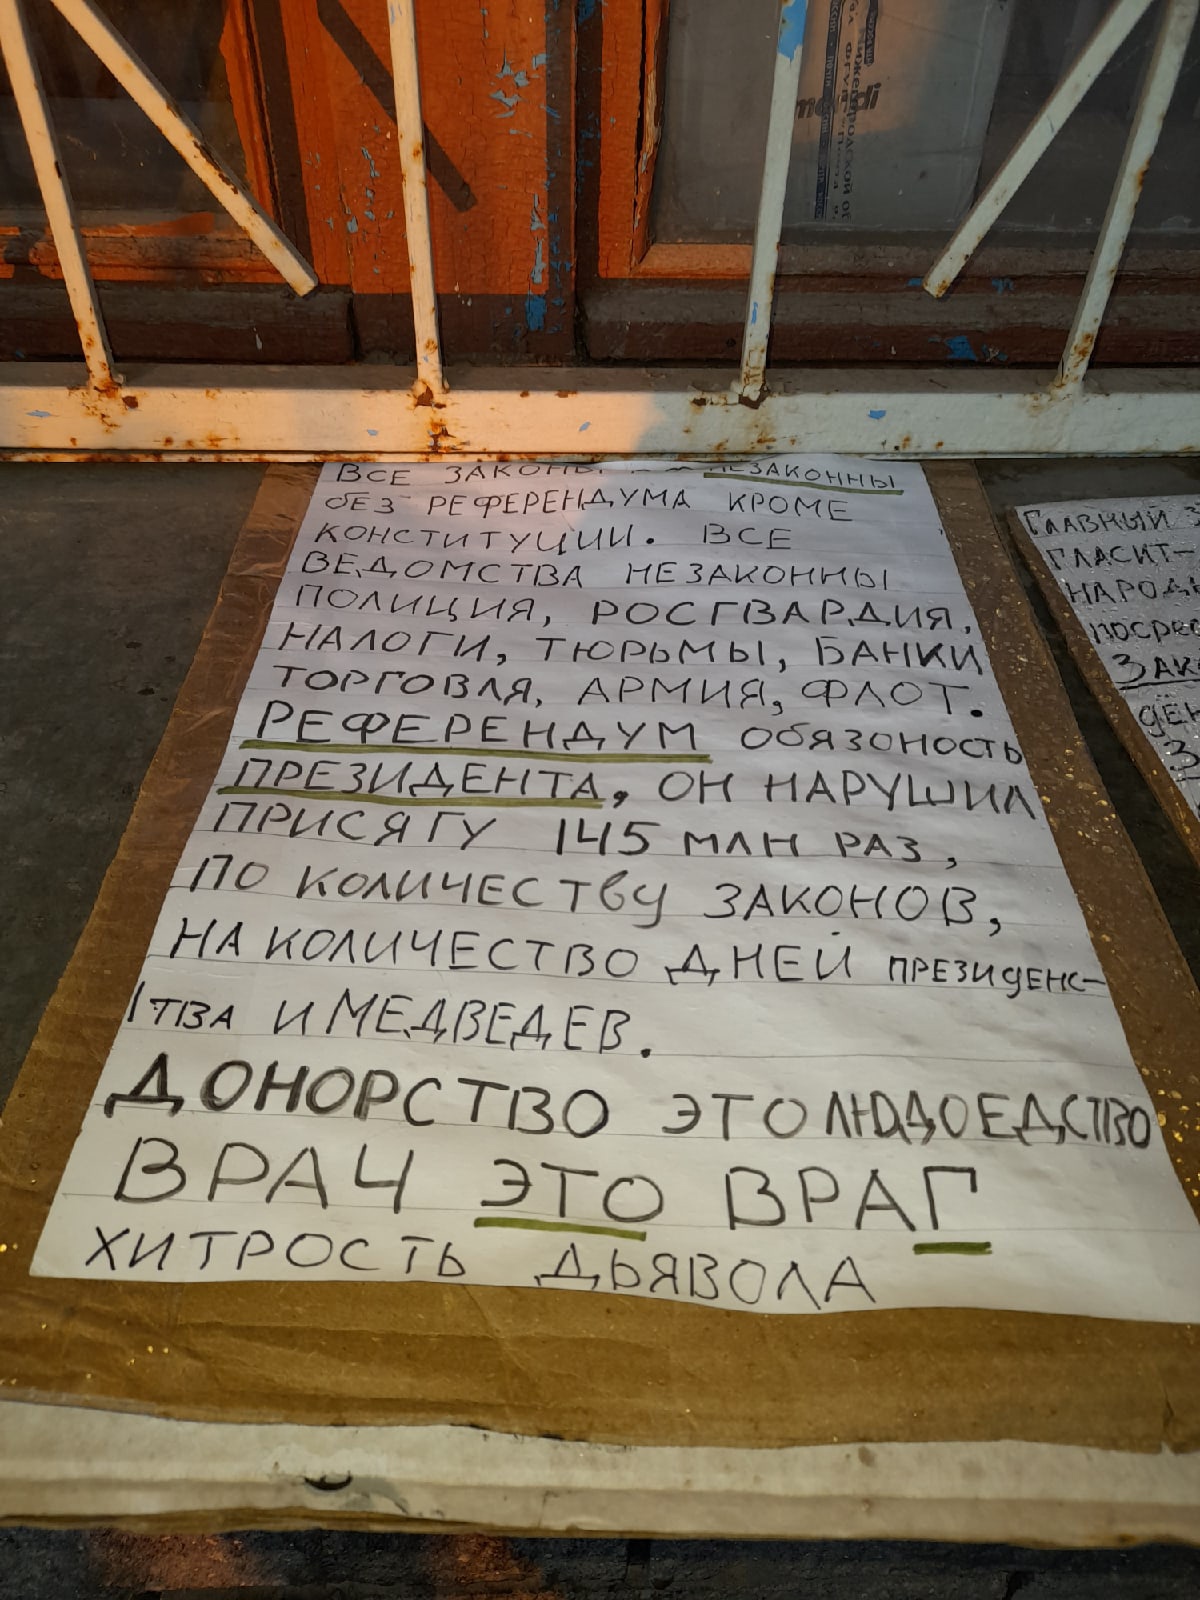 ВСЕ ЗАКОНЫ НЕЗАКОННЫ
БЕЗ РЕФЕРЕНДУМА КРОМЕ
КОНСТИТУЦИИ. ВСЕ
ВЕДОМСТВА НЕЗАКОННЫ
ПОЛИЦИЯ, РОСГВАРДИЯ,
НАЛОГИ, ТЮРЬМЫ, БАНКИ
ТОРГОВЛЯ, АРМИЯ, ФЛОТ.
РЕФЕРЕНДУМ ОБЯЗОНОСТЬ
ПРЕЗИДЕНТА, ОН НАРУШИЛ
ПРИСЯГУ 145 МЛН РАЗ,
ПО КОЛИЧЕСТВУ ЗАКОНОВ,
НА КОЛИЧЕСТВО ДНЕЙ ПРЕЗИДЕНС-
ТВА И МЕДВЕДЕВ.
ДОНОРСТВО ЭТО ЛЮДОЕДСТВО
ВРАЧ ЭТО ВРАГ
ХИТРОСТЬ ДЬЯВОЛА
ГЛАВНЫЙ З
ГЛАСИТ-
НАРОДН
ПОСРЕД
ЗАК
ДЁН
З